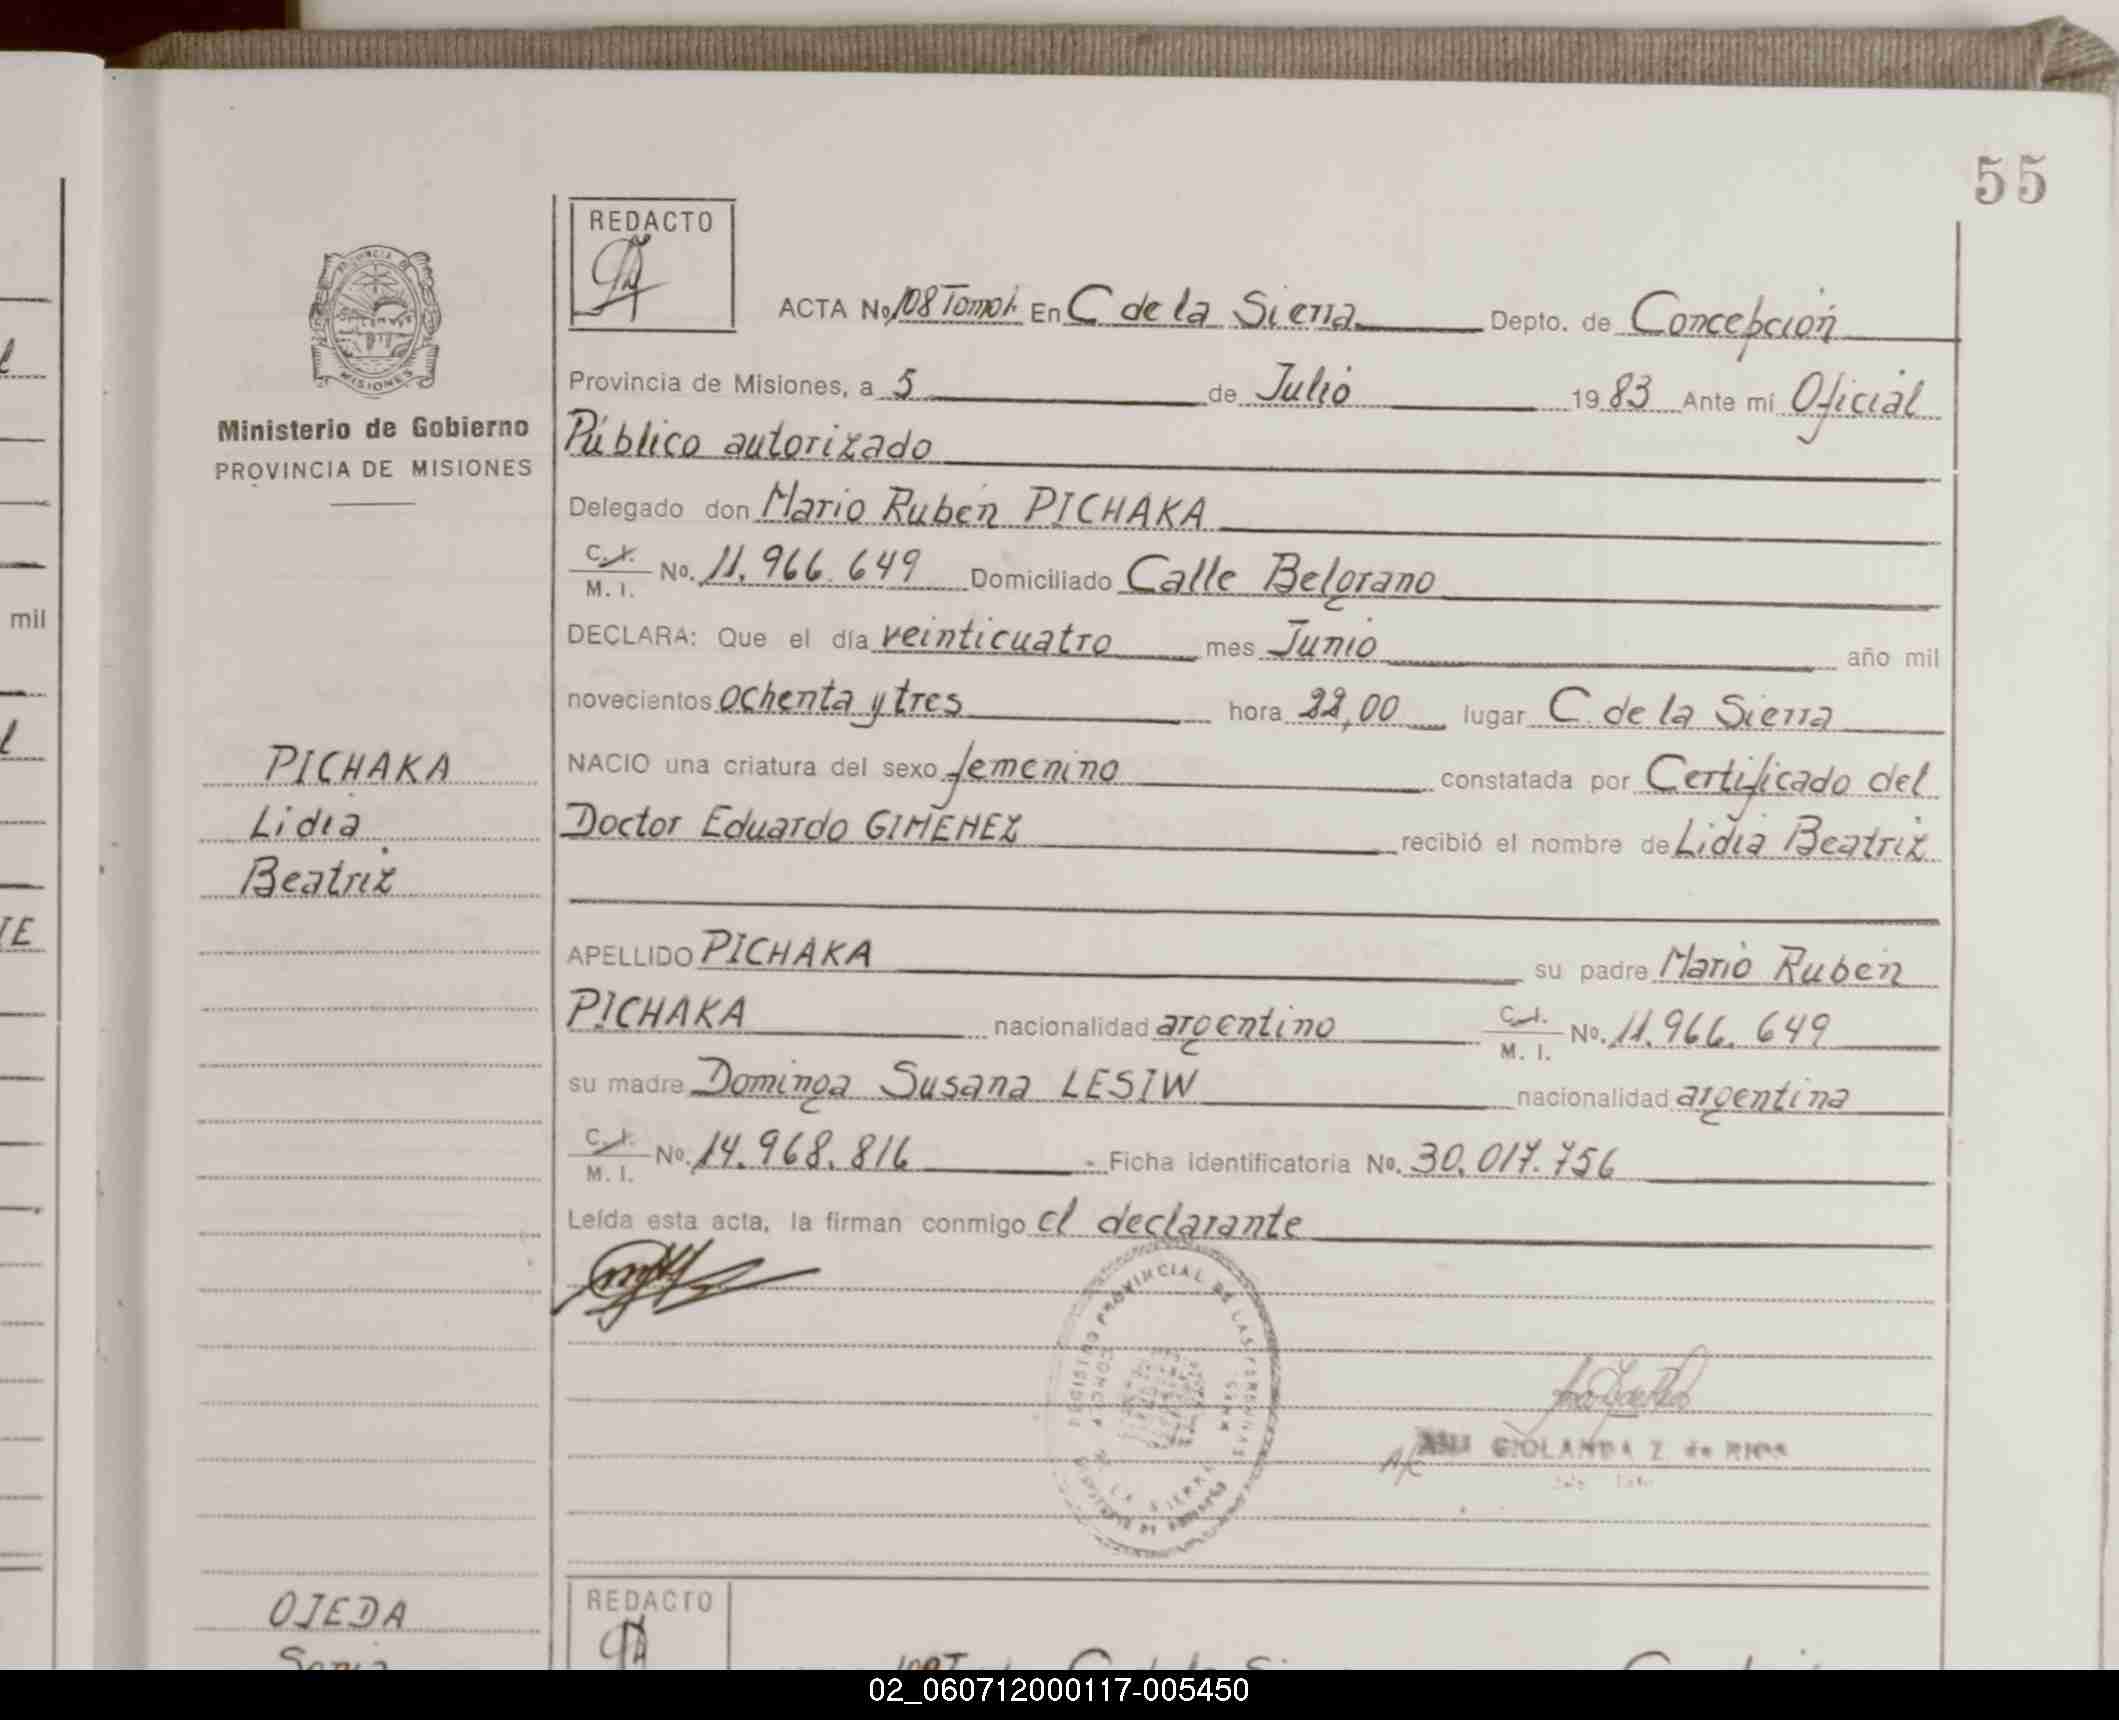 55
REDACTO
ACTA No. 108 Tomo I. En C de la Sierra Depto. de Concepción
Provincia de Misiones, a 5 de Julio 1983 Ante mí Oficial
Público autorizado
Delegado don Mario Rubén PICHAKA
C. I. M. I. No. 11.966.649 Domiciliado Calle Belgrano
DECLARA: Que el día veinticuatro mes Junio año mil
novecientos ochenta y tres hora 22,00 lugar C. de la Sierra
NACIO una criatura del sexo femenino constatada por Certificado del
Doctor Eduardo GIMENEZ recibió el nombre de Lidia Beatriz
APELLIDO PICHAKA su padre Mario Rubén
PICHAKA nacionalidad argentino C. I. M. I. No. 11.966.649
su madre Dominga Susana LESIW nacionalidad argentina
C. I. M. I. No. 14.968.816 Ficha identificatoria No. 30.017.756
Leída esta acta, la firman conmigo el declarante
REGISTRO PROVINCIAL DE LAS PERSONAS
DE LA SIERRA
A/C
Z de RIOS
PROVINCIA DE
MISIONES
Ministerio de Gobierno
PROVINCIA DE MISIONES
PICHAKA
Lidia
Beatriz
OJEDA
REDACTO
mil
02_060712000117-005450